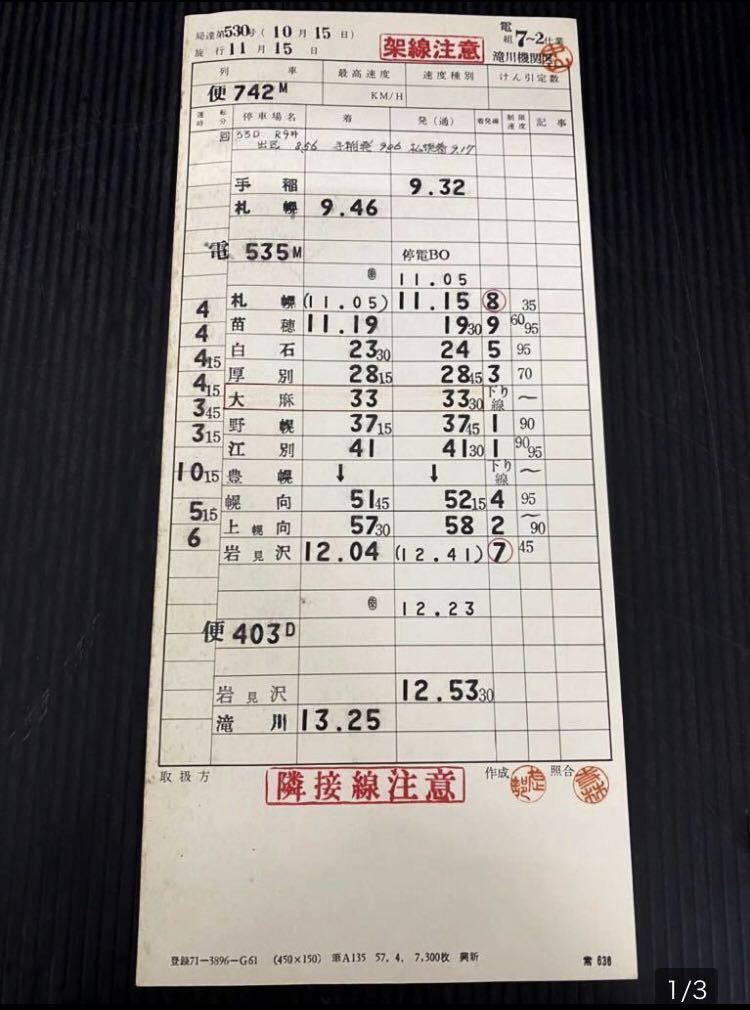 局達第530号(10月15日)
施行11月15日
架線注意
電組7~2仕業
滝川機関区
列車 最高速度 速度種別 けん引定数
便742M KM/H
運転時分 停車場名 着 発(通) 着発線 制限速度 記事
回 33D R9号
出区 8.56 手稲発 9.06 札幌着 9.17
手稲 9.32
札幌 9.46
電 535M 停電BO
11.05
札幌 (11.05) 11.15 ⑧ 35
4
苗穂 11.19 19 30 9 60 95
4
白石 23 30 24 5 95
4 15
厚別 28 15 28 45 3 70
4 15
大麻 33 33 30 下り線 〜
3 45
野幌 37 15 37 45 1 90
3 15
江別 41 41 30 1 90 95
豊幌 ↓ ↓ 下り線 〜
10 15
幌向 51 45 52 15 4 95
5 15
上幌向 57 30 58 2 〜90
6
岩見沢 12.04 (12.41) ⑦ 45
12.23
便403D
岩見沢 12.53 30
滝川 13.25
取扱方
隣接線注意
作成 照合
登録71-3896-G61 (450×150) 筆A135 57.4. 7,300枚 興新
常 636
1/3